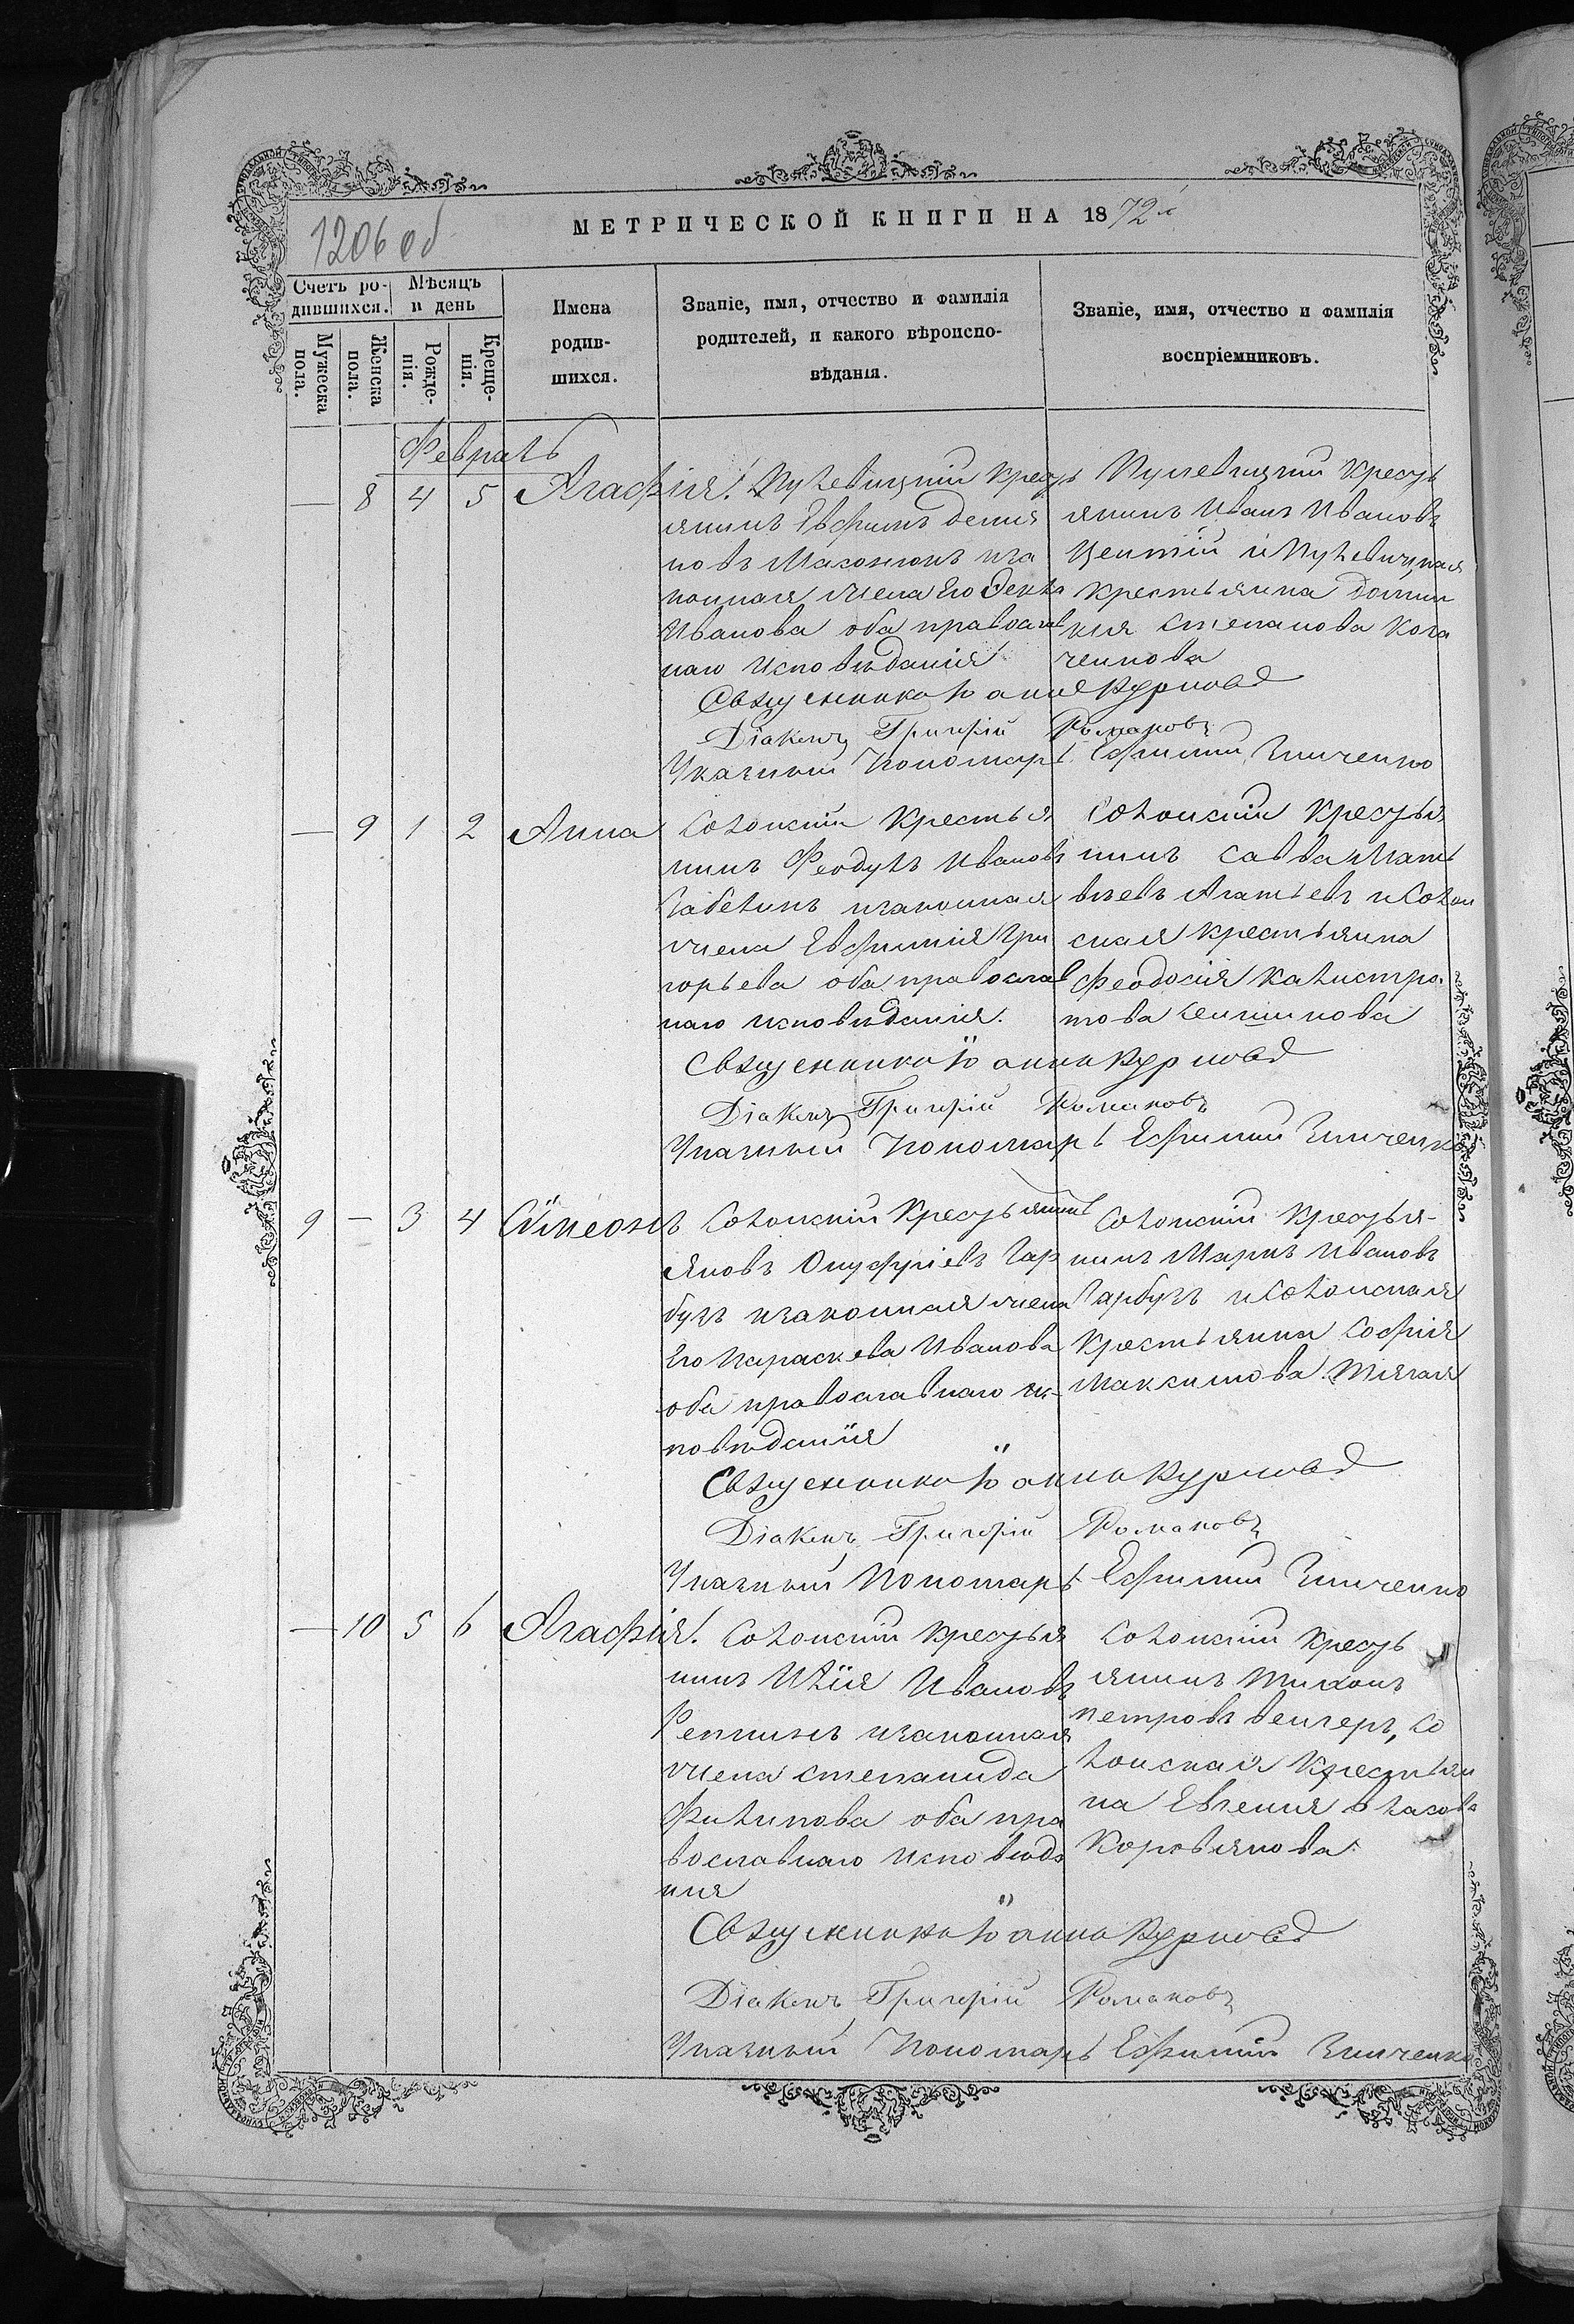 1206 об
МЕТРИЧЕСКОЙ КНИГИ НА 1872й
Счетъ ро-
дившихся.
Мѣсяцъ
и день
Мужеска
пола.
Женска
пола.
Рожде-
нія.
Креще-
нія.
Имена
родив-
шихся.
Званіе, имя, отчество и фамилія
родителей, и какого вѣроиспо-
вѣданія.
Званіе, имя, отчество и фамилія
воспріемниковъ.
Февраль
— 8 4 5 Агафія.
крест
янинъ Евфимъ Демия
новъ иза
конная жена его
Иванова оба православ
наго исповѣданія
крестъ
янинъ Иванъ Ивановъ
крестьянка Домни
кия Степанова
Священникъ Іоаннъ Курновъ
Діаконъ Григорій Романовъ
Указный Пономарь Ефимий Зинченко
— 9 1 2 Анна
Солонскій Крестья
нинъ Феодулъ Ивановъ
изаконная
жена Евфимія Гри
горьева оба православ
наго исповѣданія.
Солонскій Крестья
нинъ Савва Матѣ
вѣевъ Агатьевъ иСолон
ская крестьянка
Феодосія Калистра
това
Священникъ Іоаннъ Курновъ
Діаконъ Григорій Романовъ
Указный Пономарь Ефимий Зинченко
9 — 3 4 Сѵмеонъ
Солонскій Крестьянинъ
Яковъ Онуфріевъ Гар
бузъ изаконная жена
Его Параскева Иванова
оба православнаго ис-
повѣданія
Солонскій Крестья-
нинъ Маркъ Ивановъ
Гарбузъ иСолонская
Крестьянка Софія
Максимова
Священникъ Іоаннъ Курновъ
Діаконъ Григорій Романовъ
Указный Пономарь Ефимий Зинченко
— 10 5 6 Агафія.
Солонскій Крестья
нинъ Илія Ивановъ
Репкинъ изаконная
жена Степанида
Филипова оба пра
вославнаго исповѣда
ния
Солонскій Кресть
янинъ Тихонъ
Петровъ Венгеръ, Со
лонская Крестьян
ка Евгения Власова
Коровякова
Священникъ Іоаннъ Курновъ
Діаконъ Григорій Романовъ
Указный Пономарь Ефимій Зинченко